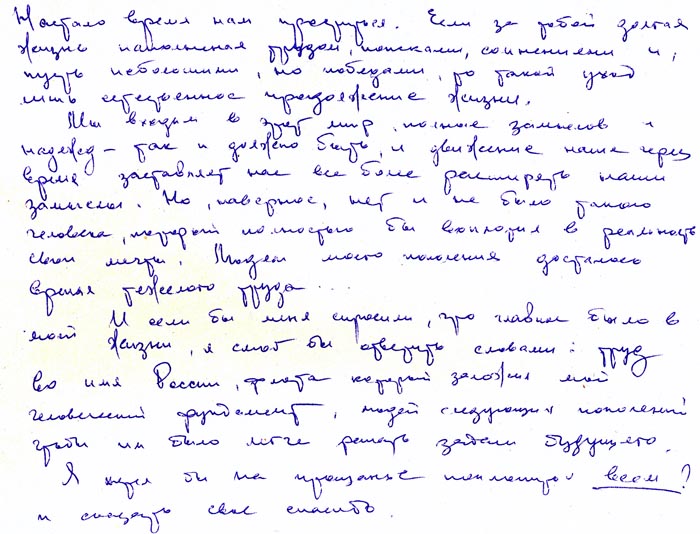 Настало время нам проститься. Если за тобой долгая
жизнь наполненная трудом, поисками, сомнениями и,
пусть небольшими, но победами, то такой уход
лишь естественное продолжение жизни.
Мы входим в этот мир, полные замыслов и
надежд – так и должно быть, и движение наше через
время заставляет нас все более расширять наши
замыслы. Но, наверное, нет и не было такого
человека, который полностью бы воплотил в реальность
свои мечты. Людям моего поколения досталось
время тяжелого труда...
И если бы меня спросили, что главное было в
моей жизни, я смог бы ответить словами: труд
во имя России, флота который заложил мой
человеческий фундамент, людей следующих поколений
чтобы им было легче решать задачи будущего.
Я хотел бы на прощанье поклониться всем?
и сказать свое спасибо